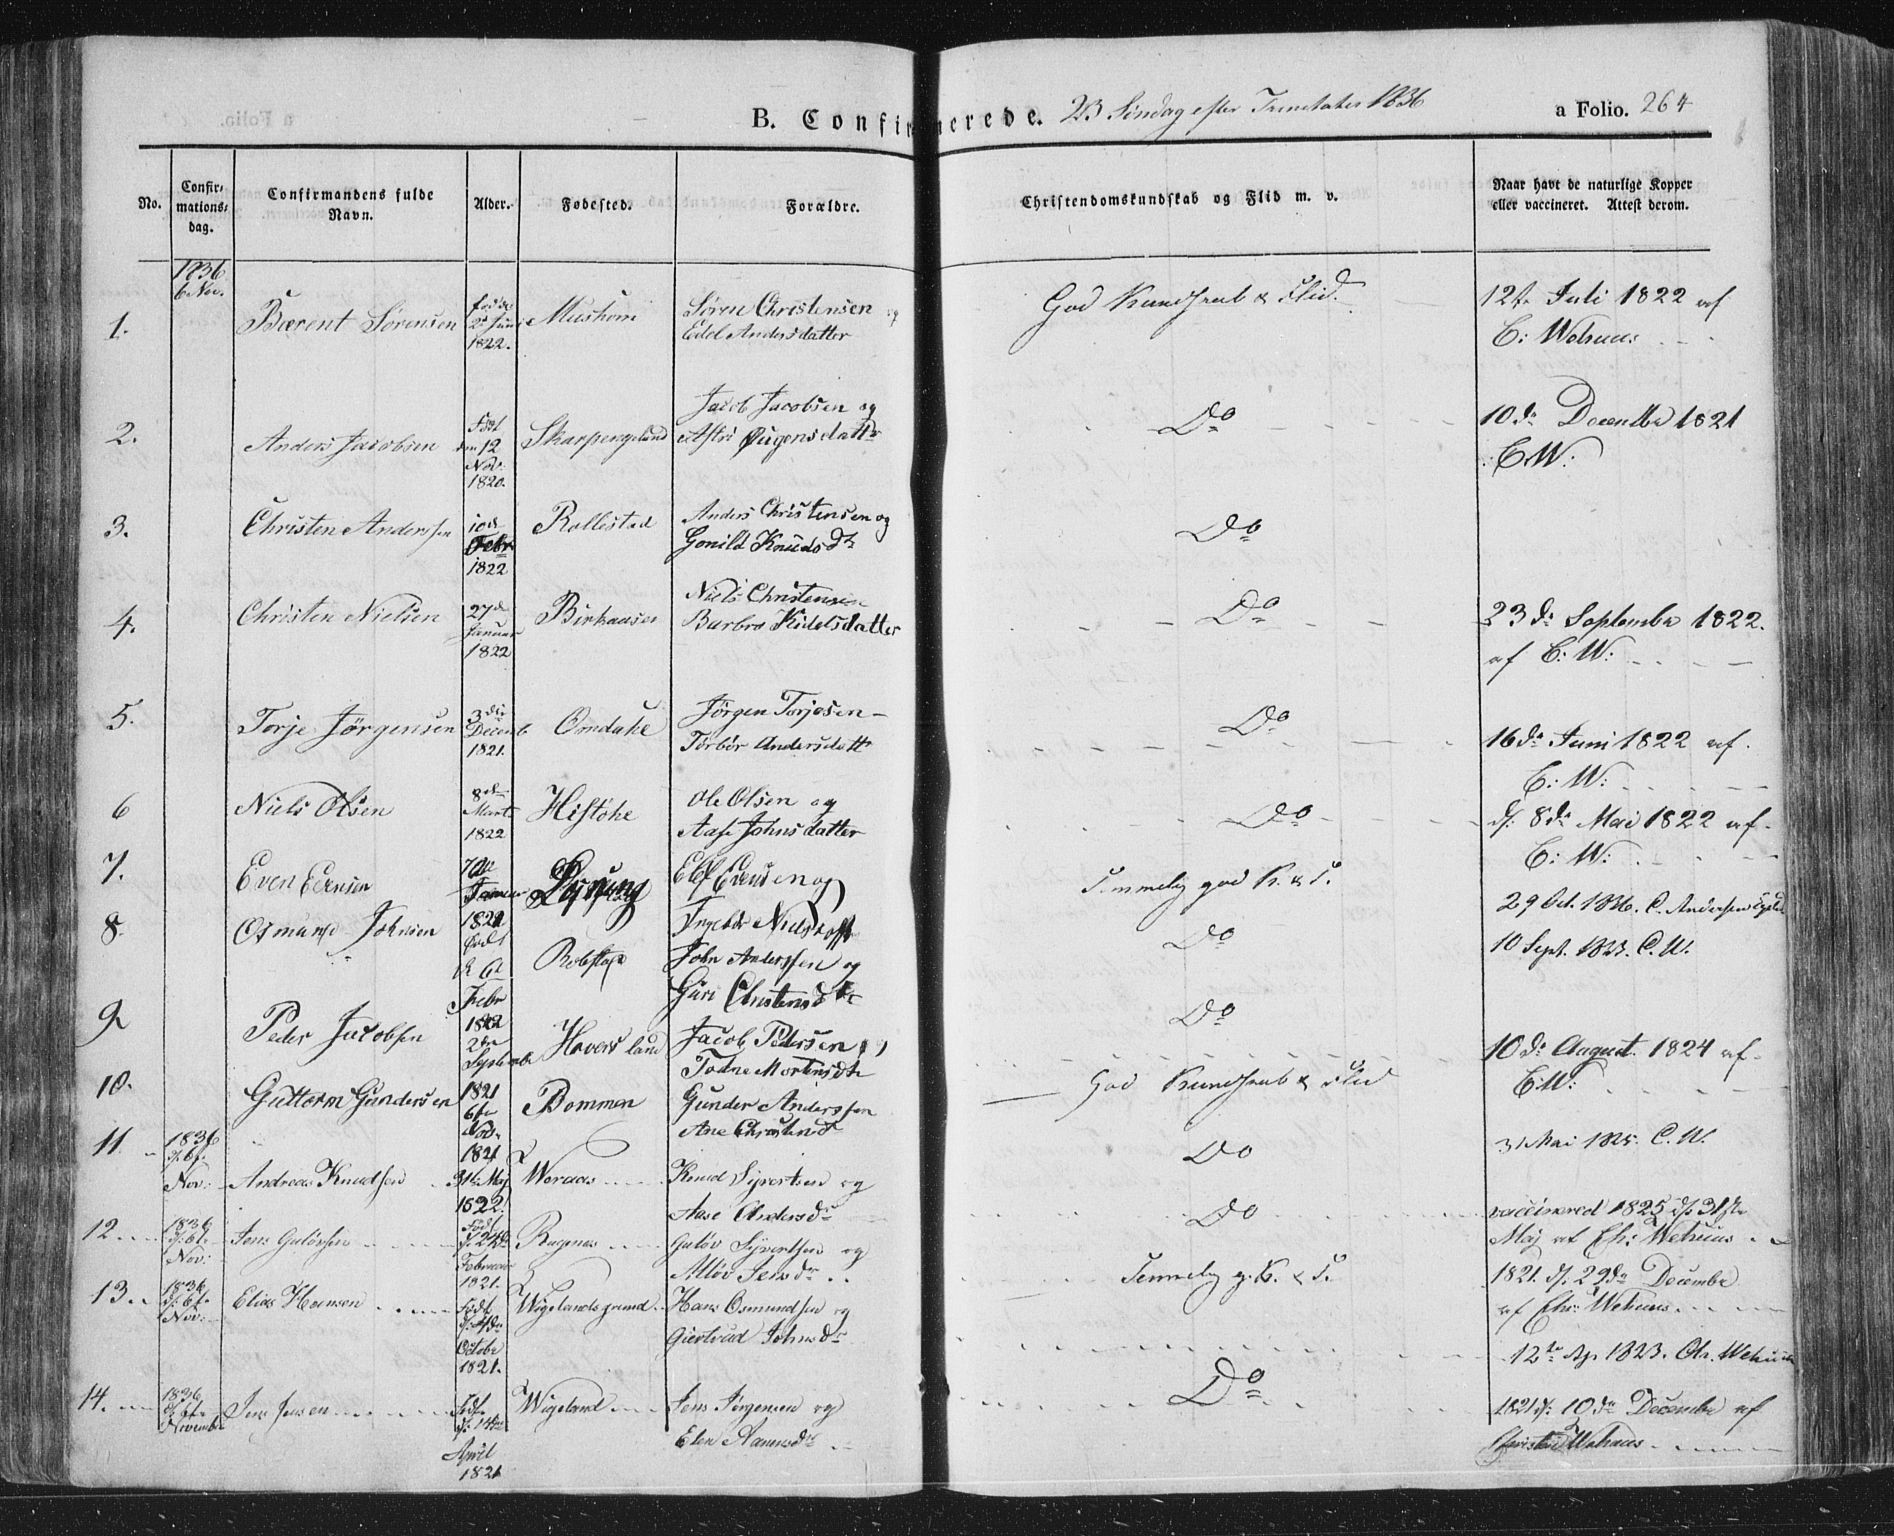 B. Confirmerede. 23 Söndag efter Trinitatis 1836
a Folio. 264
No.
Confir-
mations-
dag.
Confirmandens fulde
Navn.
Alder.
Fødested.
Forældre.
Christendomskundskab og Flid m. v.
Naar havt de naturlige Kopper
eller vaccineret. Attest derom.
1836
6 Nov.
1. Bærent Sörensen
född
2d Juni
1822.
Sören Christensen og
Edel Andersdatter
God Kundskab & Flid.
12te Juli 1822 af
C: Wehuus
2. Anders Jacobsen
Född
den 12
Nov:
1820.
Skarpengeland
Jacob Jacobsen og
Astri Øugensdattr
Do
10de December 1821
C.W:
3. Christen Anderssen
10de
Febr
1822
Rollestad
Anders Christensen og
Gonild Knudsdtr
Do
4. Christen Nielsen
27de
Januar
1822
Birkaasen
Niels Christensen
Barbro Kidelsdatter
Do
23de Septembr 1822.
af C: W:
5. Torje Jörgensen
3die
Decemb
1821.
Omdahl
Jörgen Torjesen
Torbör Andersdatt
Do
16de Juni 1822 af
C: W:
6 Niels Olsen
8de
Mart
1822
Ole Olsen og
Aase Johnsdatter
Do
d: 8de Mai 1822 af
C: W:
7. Even
Evensen og
Temmelig god K. & F.
29 Oct. 1836. C. Andersen
8. Osmund Johnsen
Født
d. 6te
Febr
1822
Robstad
John Anderssen og
Guri Christensdtr
Do
10 Sept. 1823. C. W.
9 Peder Jacobsen
2den
September
1821
Haversland
Jacob Pedersen og
Todne Mortensdtr
Do
10de August 1824 af
C.W:
10. Guttorm Gundersen
6te
Nov.
1821
Bommen
Gunder Anderssen
Ane Christensd
God Kundskab & Flid
31 Mai 1825. C. W.
11. 1836
d: 6te
Nov: Andreas Knudsen
31te Maj
1822.
Weraas
Knud Syvertsen og
Aase Andersdr
Do
vaccinered 1825 d: 31te
Maj af Chr: Wehuus
12. 1836
d: 6te
Nov: Jens Gulövsen
Född
d: 24de
Februar
1821.
Gulöv Syvertsen og
Allöv Jensdr
Do
1821. d: 29de Decembr
af Chr: Wehuus
13. 1836
d: 6te
Nov: Elias Hansen
Född
d: 4de
Octobr
1821.
Wigelandsgrund
Hans Osmundsen og
Giertrud Johnsdr
Temmelig g. K. & F.
12te Ap. 1823. Chr. Wehuus
14. 1836
d: 6te
November Jens Jensen
Född
d: 14de
April
1821
Wigeland
Jens Jörgensen og
Elen Aanensdr
Do
1821 d: 10de Decembr af
Christen Wehuus